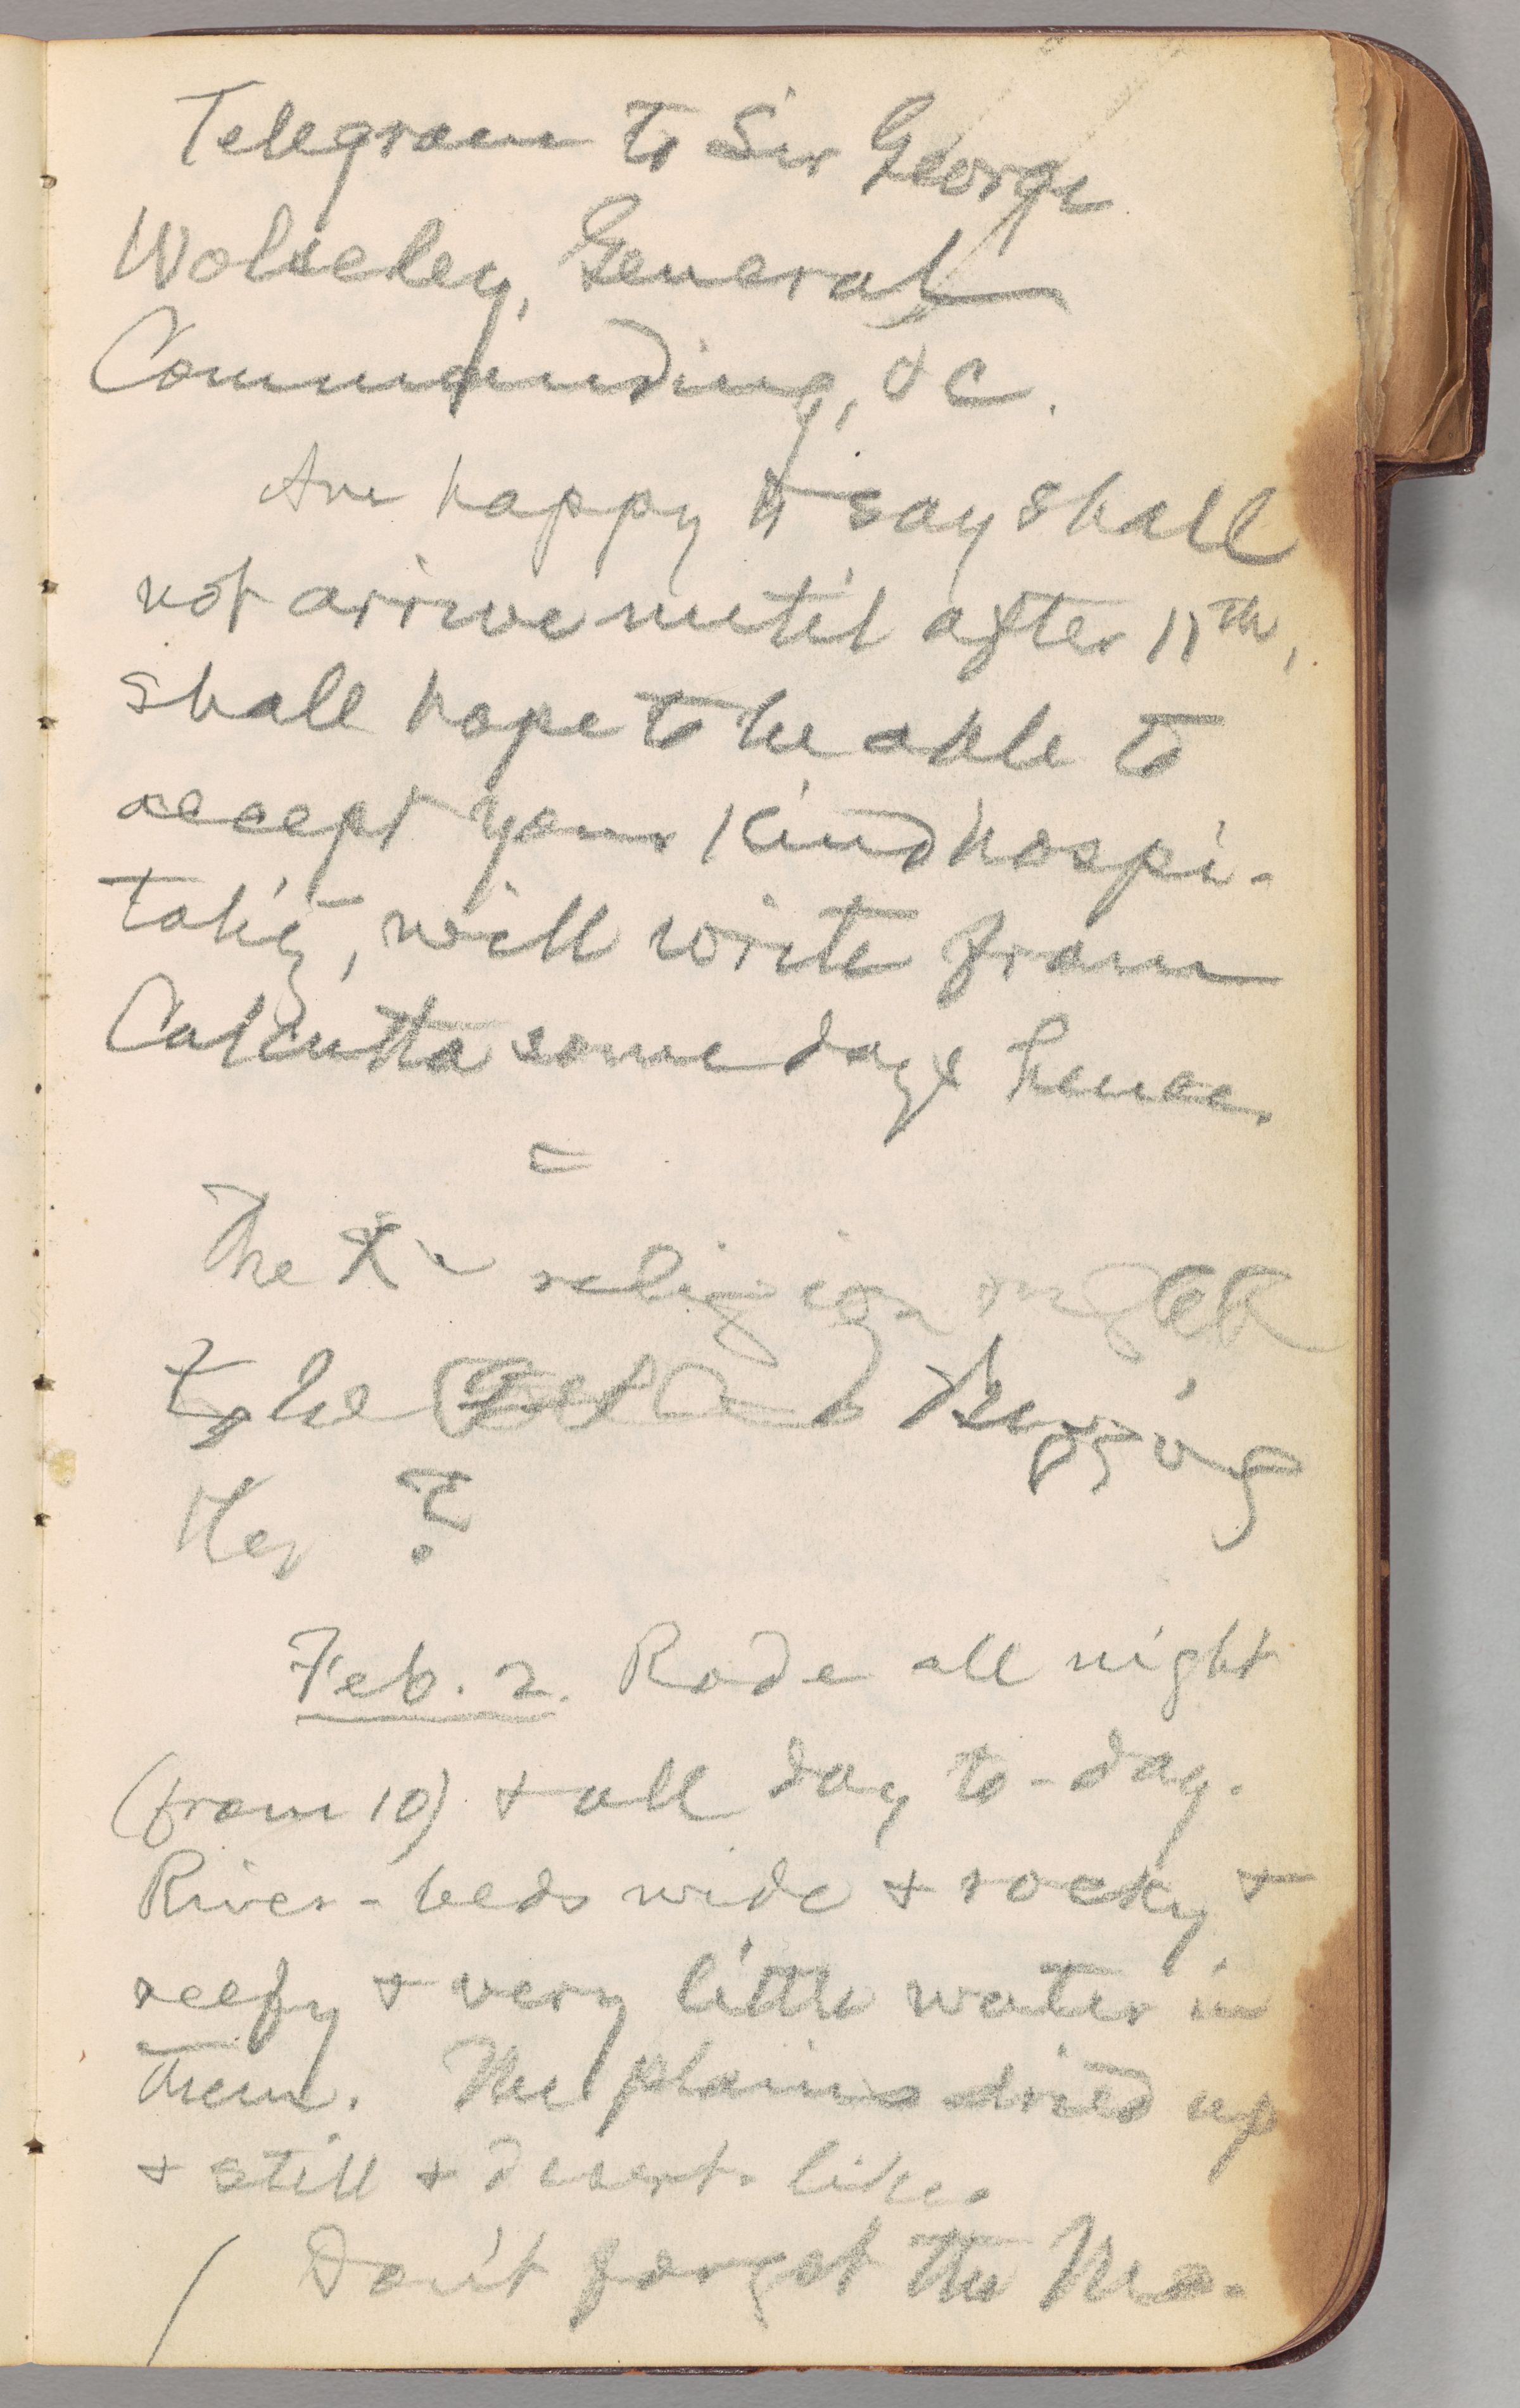 Telegram to Sir George
Wolseley, General
Commanding, &c.
Are happy to say shall
not arrive until after 11th,
shall hope to be able to
accept your kind hospi-
tality, will write from
Calcutta some days hence.
=
The Xn religion ought
to be called Begging
Her ?
Feb. 2. Rode all night
(from 10) & all day to-day.
River-beds wide & rocky &
reefy & very little water in
them. The plains dried up
& still & desert-like.
Don't forget the Me-